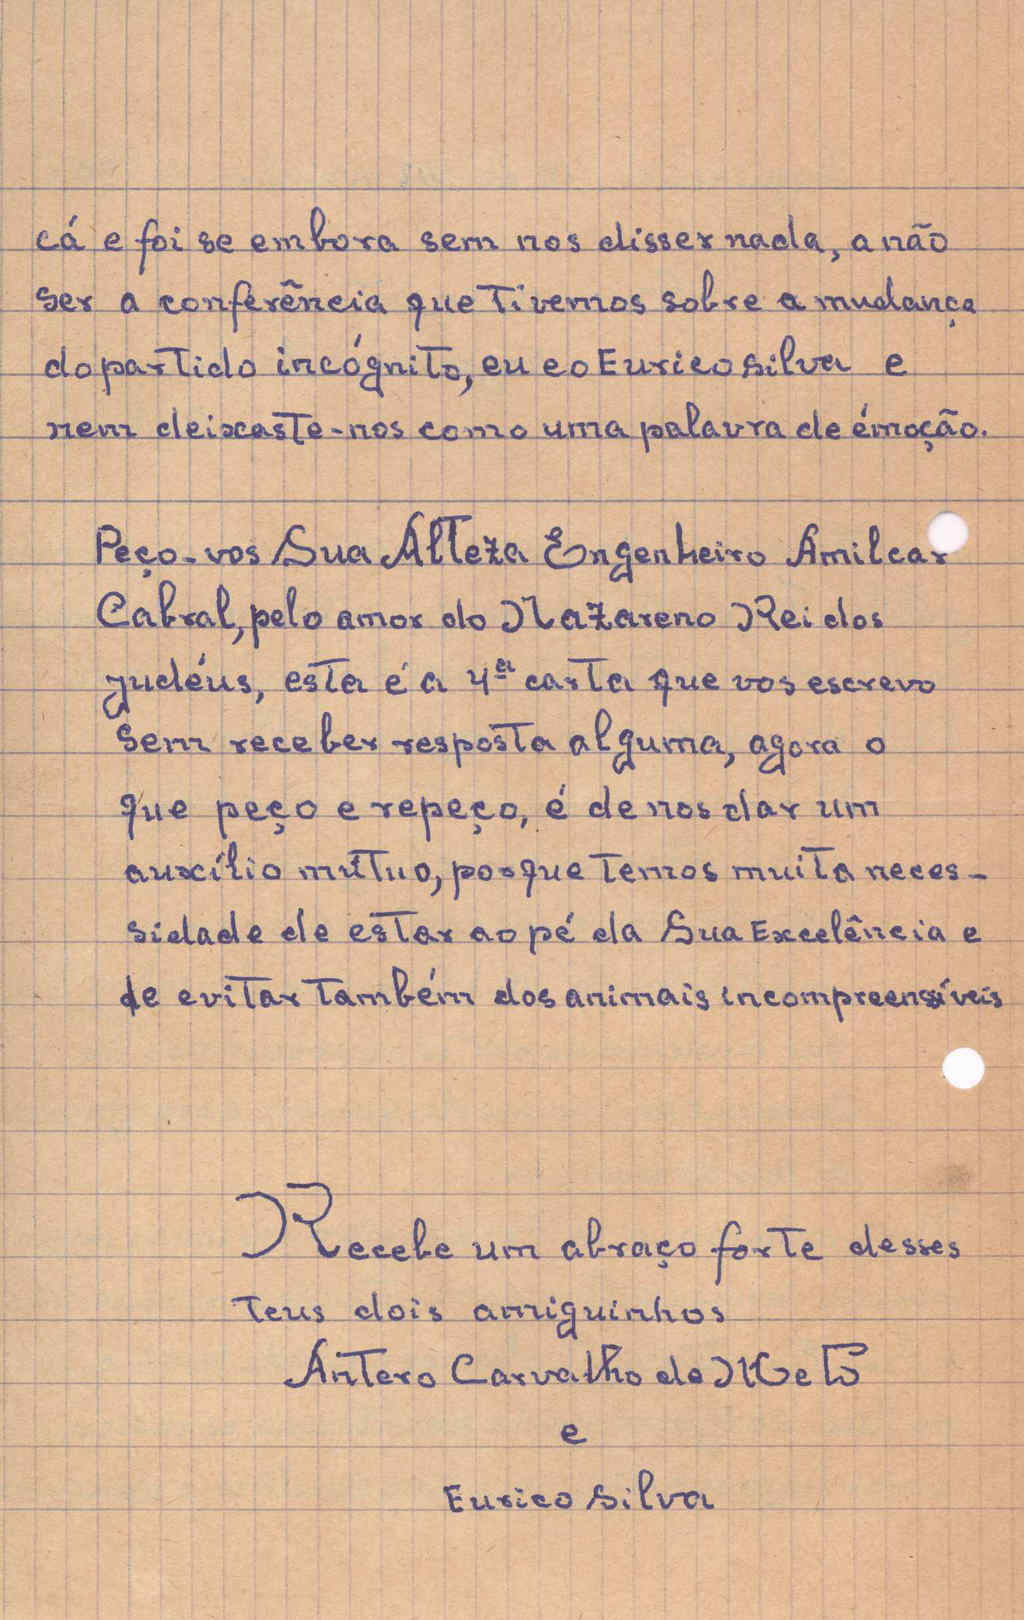 cá e foi se embora sem nos disser nada, a não
ser a conferência que Tivemos sobre a mudança
do partido incógnito, eu e o Eurico Silva e
nem deixaste-nos como uma palavra de émoção.
Peço-vos Sua Alteza Engenheiro Amilcar
Cabral, pelo amor do Nazareno Rei dos
judéus, esta é a 4ª carta que vos escrevo
Sem receber resposta alguma, agora o
que peço e repeço, é de nos dar um
auxílio mútuo, porque temos muita neces-
sidade de estar ao pé da Sua Excelência e
de evitar também dos animais incompreensíveis
Recebe um abraço forte desses
teus dois amiguinhos
Antero Carvalho de Melo
e
Eurico Silva